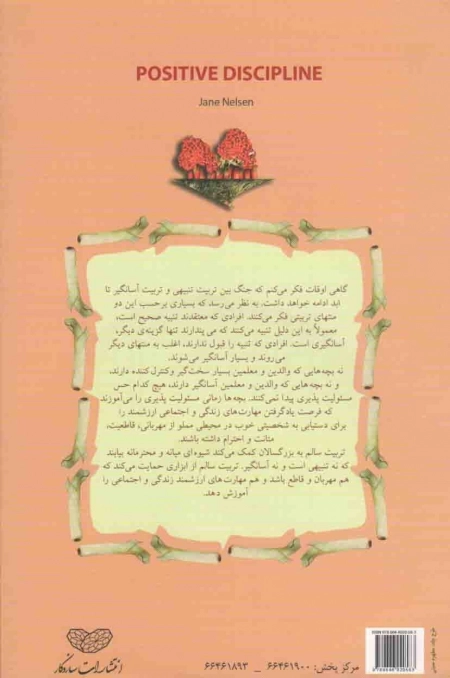 POSITIVE DISCIPLINE
Jane Nelsen
گاهی اوقات فکر می‌کنم که جنگ بین تربیت تنبیهی و تربیت آسانگیر تا
ابد ادامه خواهد داشت. به نظر می‌رسد که بسیاری برحسب این دو
منتهای تربیتی فکر می‌کنند. افرادی که معتقدند تنبیه صحیح است،
معمولاً به این دلیل تنبیه می‌کنند که می‌پندارند تنها گزینه‌ی دیگر،
آسانگیری است. افرادی که تنبیه را قبول ندارند، اغلب به منتهای دیگر
می‌روند و بسیار آسانگیر می‌شوند.
نه بچه‌هایی که والدین و معلمین بسیار سخت‌گیر و کنترل‌کننده دارند،
و نه بچه‌هایی که والدین و معلمین آسانگیر دارند، هیچ کدام حس
مسئولیت پذیری پیدا نمی‌کنند. بچه‌ها زمانی مسئولیت پذیری را می‌آموزند
که فرصت یادگرفتن مهارت‌های زندگی و اجتماعی ارزشمند را
برای دستیابی به شخصیتی خوب در محیطی مملو از مهربانی، قاطعیت،
متانت و احترام داشته باشند.
تربیت سالم به بزرگسالان کمک می‌کند شیوه‌ای میانه و محترمانه بیابند
که نه تنبیهی است و نه آسانگیر. تربیت سالم از ابزاری حمایت می‌کند که
هم مهربان و قاطع باشد و هم مهارت‌های ارزشمند زندگی و اجتماعی را
آموزش دهد.
انتشارات سازوکار
مرکز پخش: ۶۶۴۶۱۹۰۰ _ ۶۶۴۶۱۸۹۳